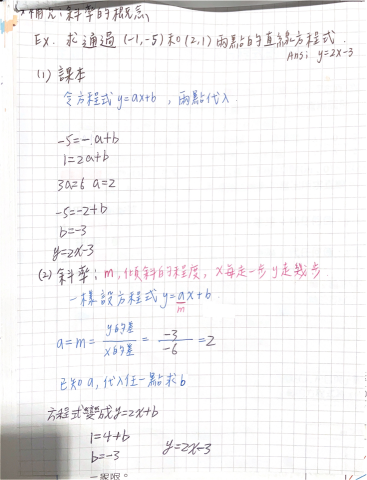 補充:斜率的概念
Ex. 求通過(-1,-5)和(2,1)兩點的直線方程式.
Ans: y=2x-3
(1) 課本
令方程式 y=ax+b , 兩點代入.
-5=-a+b
1=2a+b
3a=6 a=2
-5=-2+b
b=-3
y=2x-3
(2) 斜率: m, 傾斜的程度, x每走一步 y走幾步
一樣設方程式 y=ax+b
m
a=m= y的差/x的差 = -3/-6 =2
已知a, 代入任一點求b
方程式變成y=2x+b
1=4+b
b=-3 y=2x-3